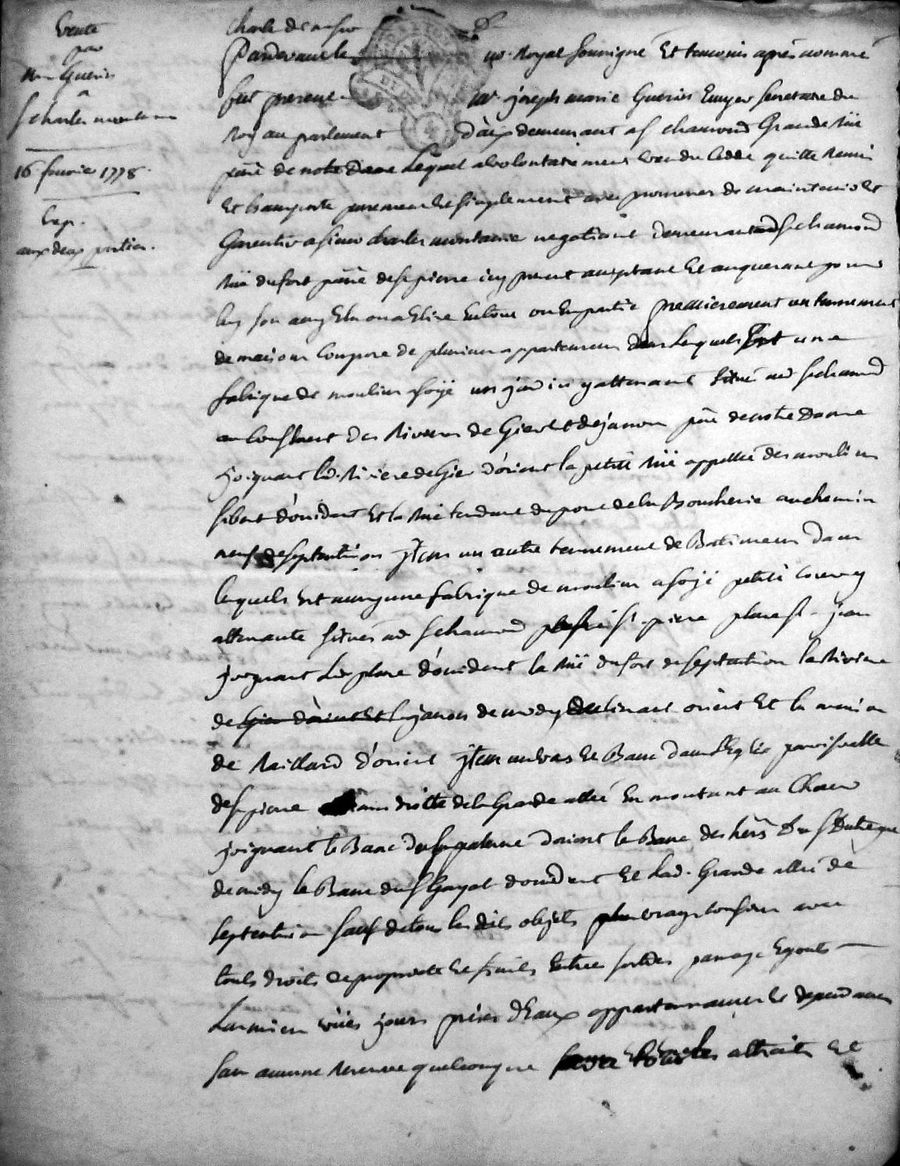 Vente
par
Mr Guerin
à
Sr charles montaine
16 fevrier 1778.
Exp.
aux deux parties.
Pardevant le no. Royal soussigné Et temoins après nommés
fut present Mr. joseph marie Guerin Ecuyer secretaire du
Roy au parlement d'aix demeurant a st chamond Grande Rüe
psse de notre Dame Lequel a volontairement vendu Cedde quitte Remis
Et transporte purement Et simplement avec promesse de maintenir Et
Garentir a sieur charles montaine negotiant demeurant aud st chamond
Rüe du fort psse de st pierre icy present acceptant Et acquerant pour
luy son amy Elu ou a Elire En tout ou En partie premierement un tenement
de maisons Composé de plusieurs appartemens dans lequels Est une
fabrique de moulins a soye un jardin y attenant situé aud st chamond
au Confluent des Rivieres de Gier Et de janon psse de notre Dame
joignant lad. Riviere de Gier d'orient la petite Rüe appellée des moulins
d'occident Et la Rüe tendant du pont de la Boucherie au chemin
neuf de septentrion jtem un autre tenement de Batimens dans
lequels Est aussy une fabrique de moulins a soye petite Cour y
attenante situés aud st chamond psse st pierre place st jean
joignant lad. place d'occident la Rüe du fort de septentrion la Riviere
de Gier d'orient Et le janon de midy orient Et la maison
de Raillard d'orient jtem un vas Et Banc dans l'Eglise paroissialle
de st pierre a main droitte de la Grande allée En montant au Choeur
joignant le Banc du Sr palerne d'orient le Banc des hers du Sr
de midy le Banc du Sr Gayot d'occident Et lad. Grande allée de
septentrion sauf de tous les dits objets plus vrays Confins avec
touts droits de proprieté Et fruits Entrée sorties passage Egouts
Larmiers vües jours prises d'Eaux appartenances Et dependances
sans aucune Reserve quelconque attraits Et